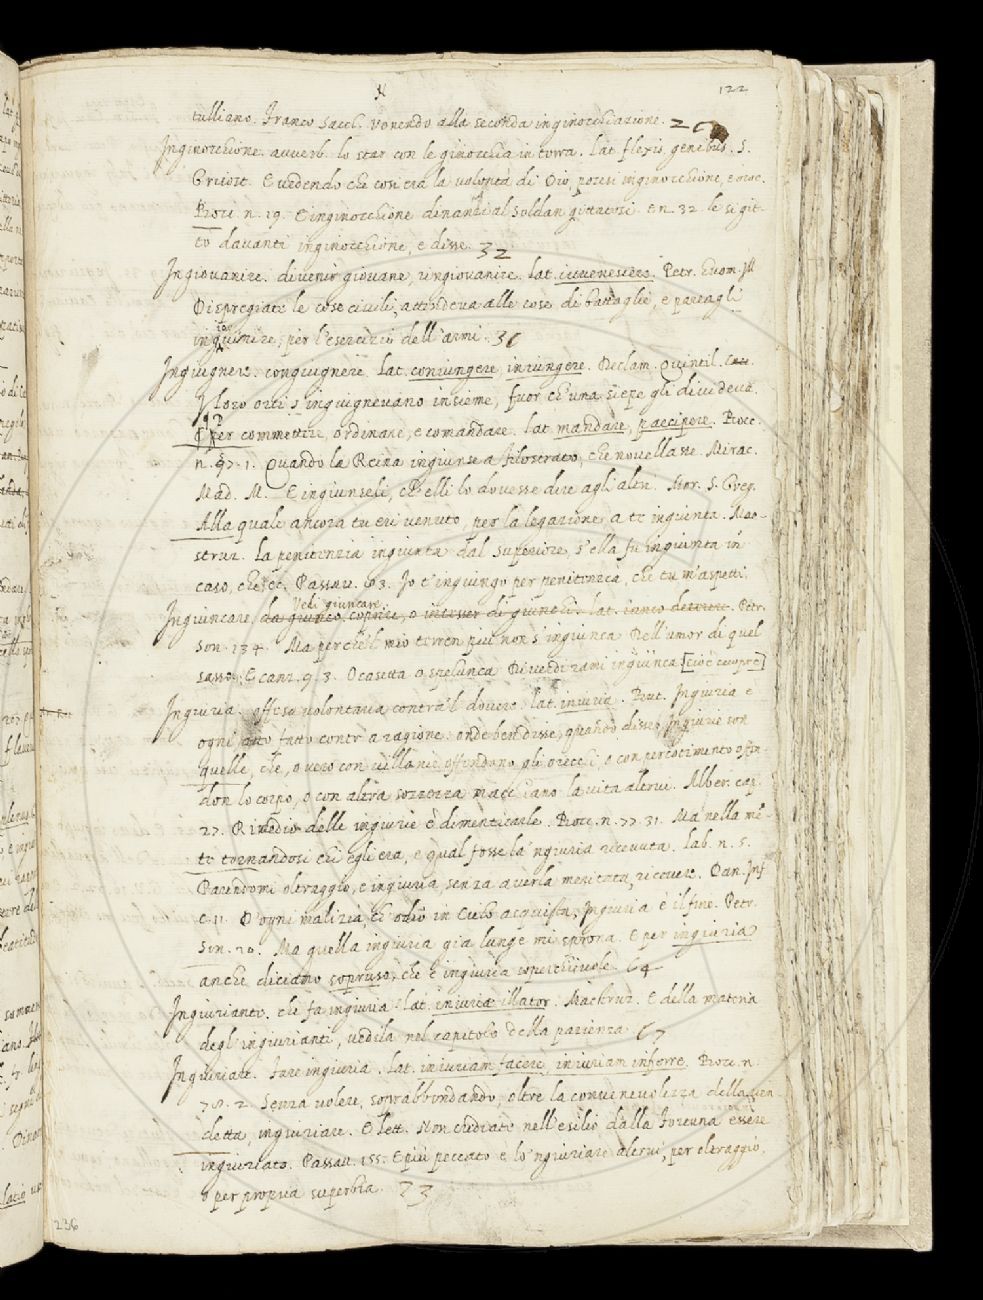 N 122
tulliano. Franco Sacch. Venendo alla seconda inginocchiazione. 26
Inginocchione. avverb. lo star con le ginocchia in terra. lat. flexis genibus. S.
Grisost. E vedendo che così era la volontà di Dio, posesi inginocchione, e oroe.
Bocc. n. 19. E inginocchione dinanzi al Soldan gittatosi. E n. 32. le si git-
tò davanti inginocchione, e disse. 32
Ingiovanire. divenir giovane, ringiovanire. lat. iuvenescere. Petr. huom. ill.
Dispregiate le cose civili, attendeva alle cose di battaglie, e pareagli
ingiovenire, per l'esercizio dell'armi. 36
Ingiugnere. congiugnere. lat. coniungere, iniungere. Declam. Quintil.
I loro orti s'ingiugnevano insieme, fuor ch'una siepe gli divideva.
¶ Per commettere, ordinare, e comandare. lat. mandare, praecipere. Bocc.
n. 97. 1. Quando la Reina ingiunse a filostrato, che novellasse. Mirac.
Mad. M. E ingiunseli, ch'elli lo dovesse dire agl'altri. Mor. S. Greg.
Alla quale ancora tu eri venuto, per la legazione a te ingiunta. Mae-
struz. La penitenzia ingiunta dal superiore, s'ella fu ingiunta in
caso, che &c. Passav. 63. Io t'ingiungo per penitenzia, che tu m'aspetti.
Vedi giuncare
Ingiuncare, da giunco, coprire, o intesser di giunchi. lat. iunco Petr.
son. 134. Ma perche'l mio terren più non s'ingiunca Dell'umor di quel
sasso. E canz. 9. 3. O casetta o spelunca Di verdi rami ingiunca [cioè cuopre]
Ingiuria. offesa volontaria contra'l dovere. lat. iniuria. But. Ingiuria è
ogni atto fatto contr'a ragione. onde ben disse, quando disse, Ingiurie son
quelle, che, o vero con villanie offendono gli orecchi, o con percotimento offen-
don lo corpo, o con altra sozzezza macchiano la vita altrui. Alber. cap.
27. Rimedio delle ingiurie è dimenticarle. Bocc. n. 77. 31. Ma nella mē-
te tornandosi chi egli era, e qual fosse la 'ngiuria ricevuta. lab. n. 5.
Parendomi oltraggio, e ingiuria, senza averla meritata, ricevere. Dan. Inf.
c. 11. D'ogni malizia, ch'odio in Cielo acquista, Ingiuria è il fine. Petr.
Son. 20. Ma quella ingiuria già lunge mi sprona. E per ingiuria
anche diciamo sopruso, che è ingiuria soperchievole. 64
Ingiuriante. che fa ingiuria. lat. iniuriae illator. Maestruz. E della materia
degl'ingiurianti, vedila nel capitolo della pazienza. 67
Ingiuriare. Fare ingiuria. lat. iniuriam facere, iniuriam inferre. Bocc. n.
78. 2. Senza volere, soprabbondando, oltre la convenevolezza della ven-
detta, ingiuriare. E lett. Non crediate nell'esilio dalla Fortuna essere
ingiuriato. Passav. 155. E più peccato è lo 'ngiuriare altrui, per oltraggio,
o per propria superbia. 73
236